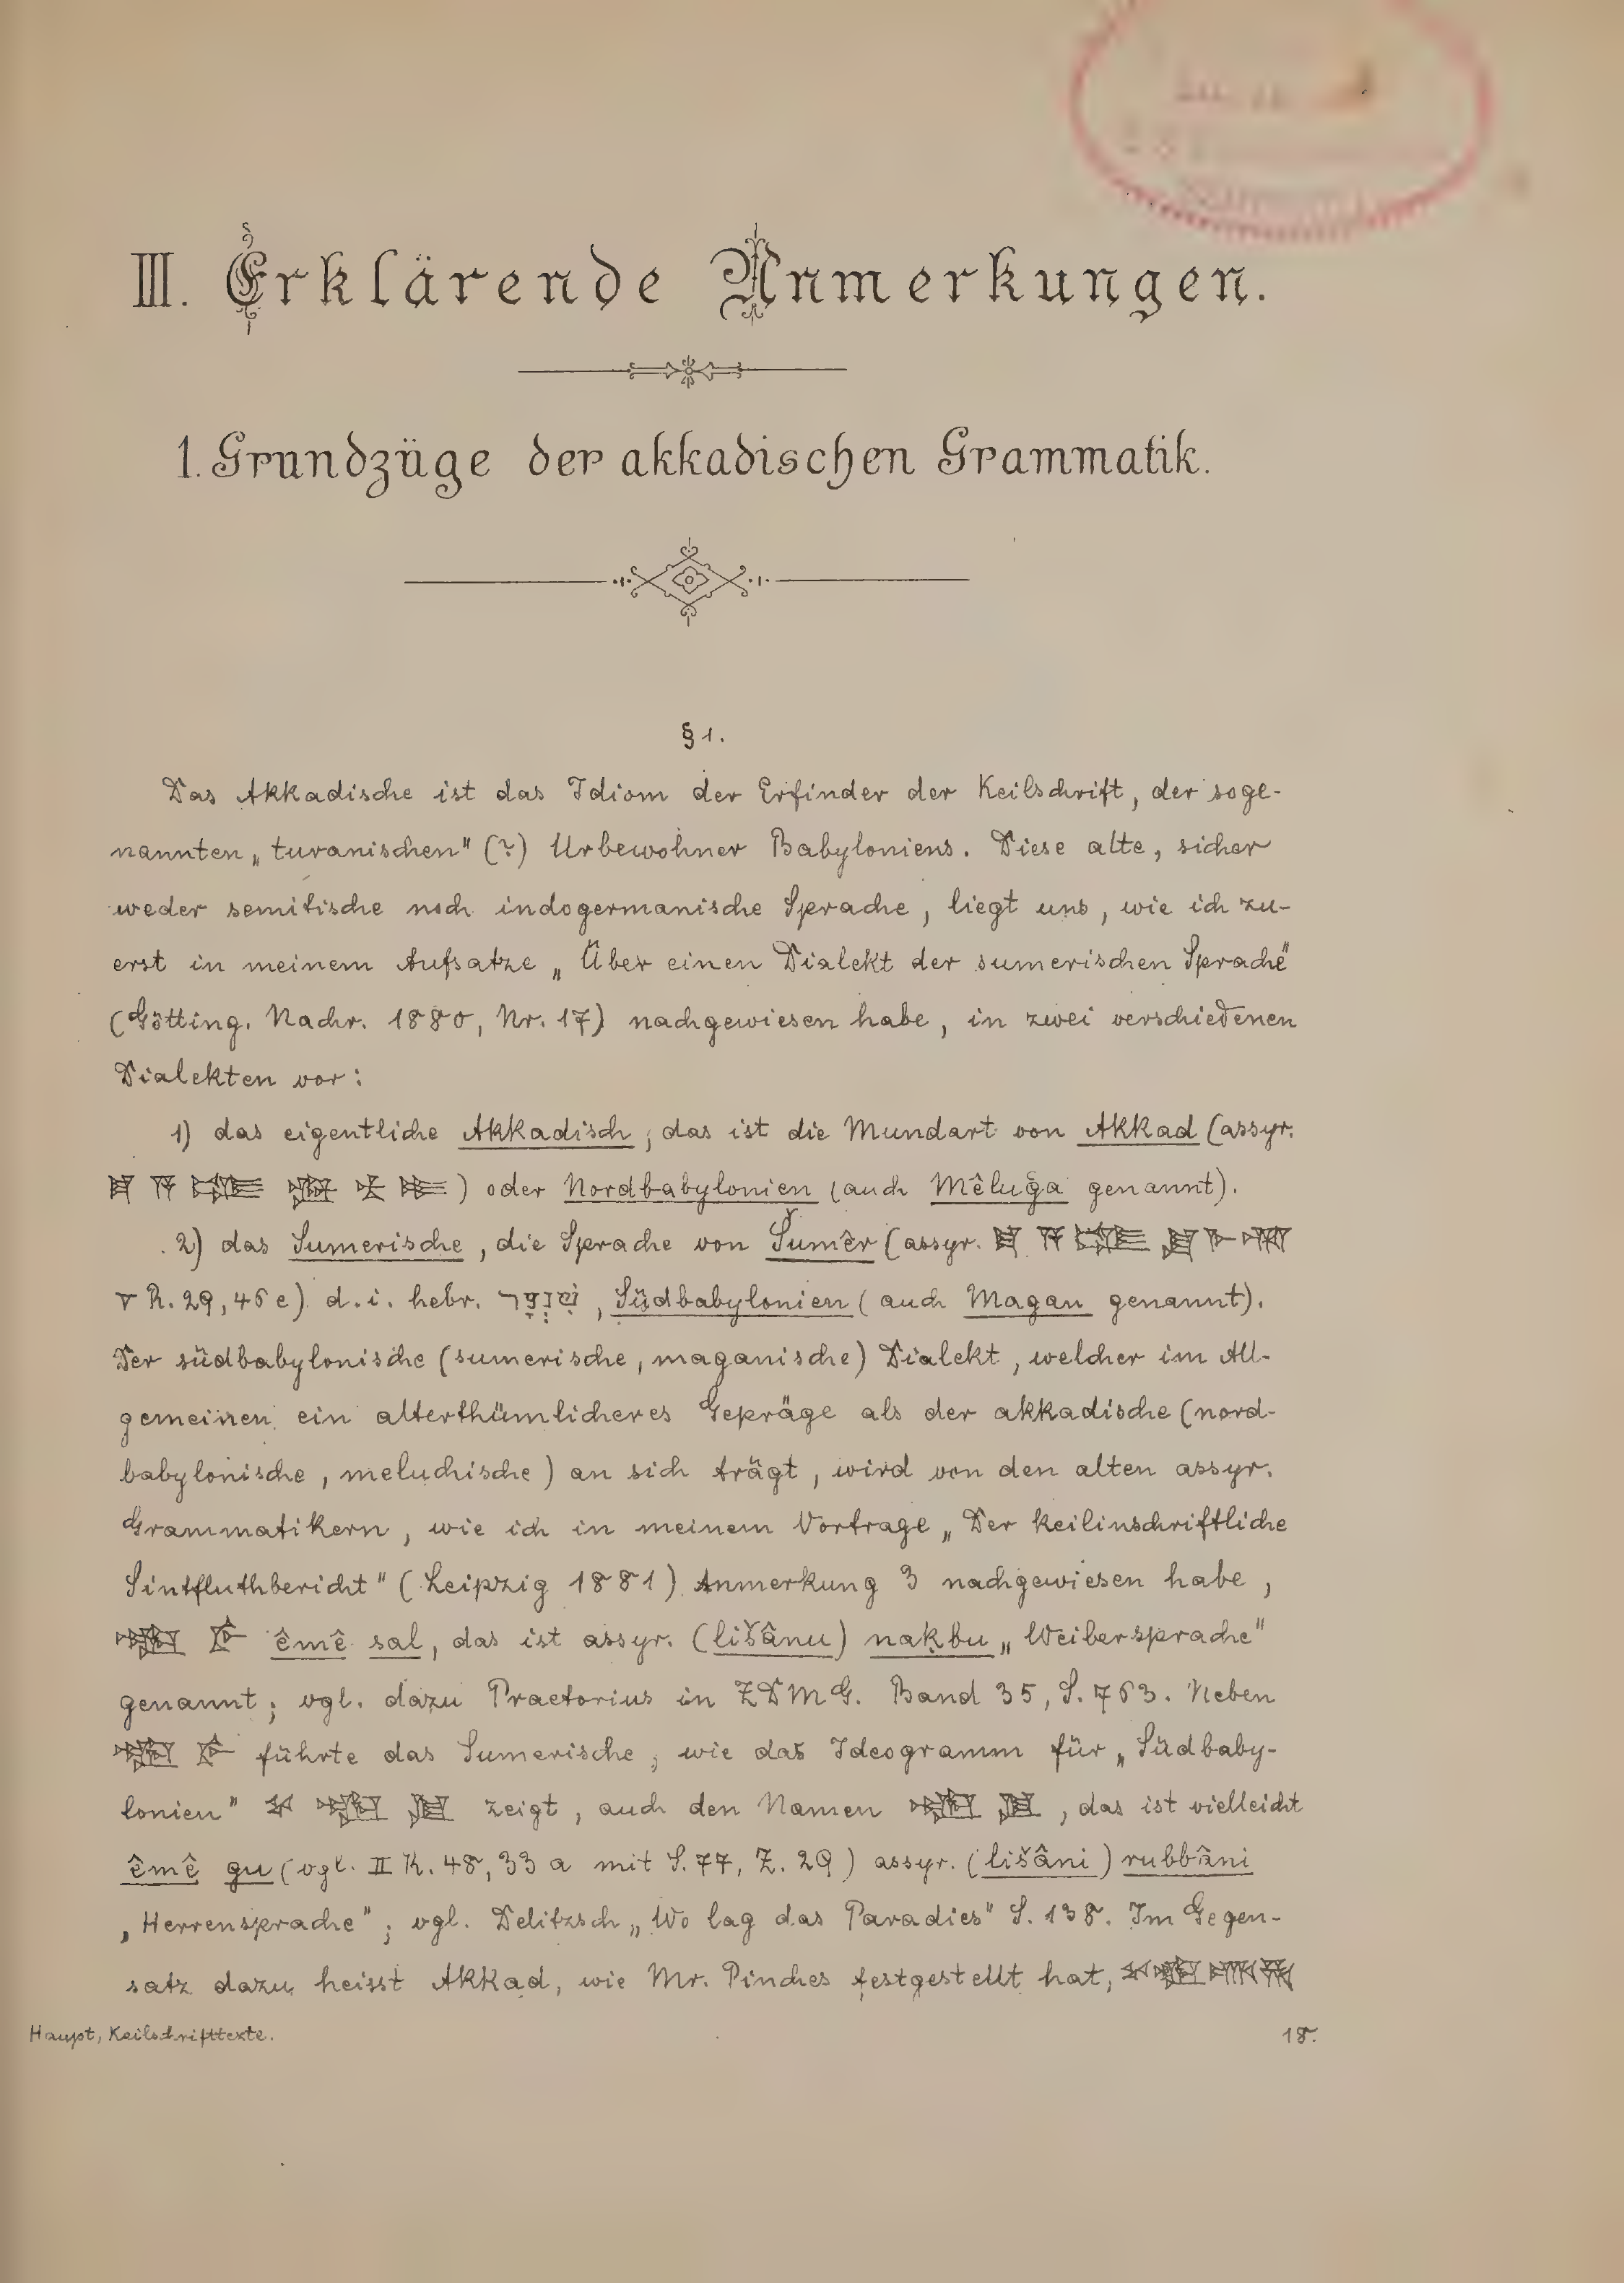 III. Erklärende Anmerkungen.
1. Grundzüge der akkadischen Grammatik.
§ 1.
Das Akkadische ist das Idiom der Erfinder der Keilschrift, der soge-
nannten „turanischen" (?) Urbewohner Babyloniens. Diese alte, sicher
weder semitische noch indogermanische Sprache, liegt uns, wie ich zu-
erst in meinem Aufsatze „Über einen Dialekt der sumerischen Sprache"
(Götting. Nachr. 1880, Nr. 17) nachgewiesen habe, in zwei verschiedenen
Dialekten vor:
1) das eigentliche Akkadisch, das ist die Mundart von Akkad (assyr.
) oder Nordbabylonien (auch Mêluğa genannt).
2) das Sumerische, die Sprache von Šumêr (assyr.
V R. 29, 46 e) d. i. hebr. שִׁנְעָר, Südbabylonien (auch Magan genannt).
Der südbabylonische (sumerische, maganische) Dialekt, welcher im All-
gemeinen ein alterthümlicheres Gepräge als der akkadische (nord-
babylonische, meluchische) an sich trägt, wird von den alten assyr.
Grammatikern, wie ich in meinem Vortrage „Der keilinschriftliche
Sintfluthbericht" (Leipzig 1881) Anmerkung 3 nachgewiesen habe,
êmê sal, das ist assyr. (lišânu) naḳbu „Weibersprache"
genannt; vgl. dazu Praetorius in ZDMG. Band 35, S. 763. Neben
führte das Sumerische, wie das Ideogramm für „Südbaby-
lonien" zeigt, auch den Namen , das ist vielleicht
êmê gu (vgl. II R. 48, 33 a mit S. 77, Z. 29) assyr. (lišâni) rubbâni
„Herrensprache"; vgl. Delitzsch „Wo lag das Paradies" S. 138. Im Gegen-
satz dazu heisst Akkad, wie Mr. Pinches festgestellt hat,
Haupt, Keilschrifttexte. 18.